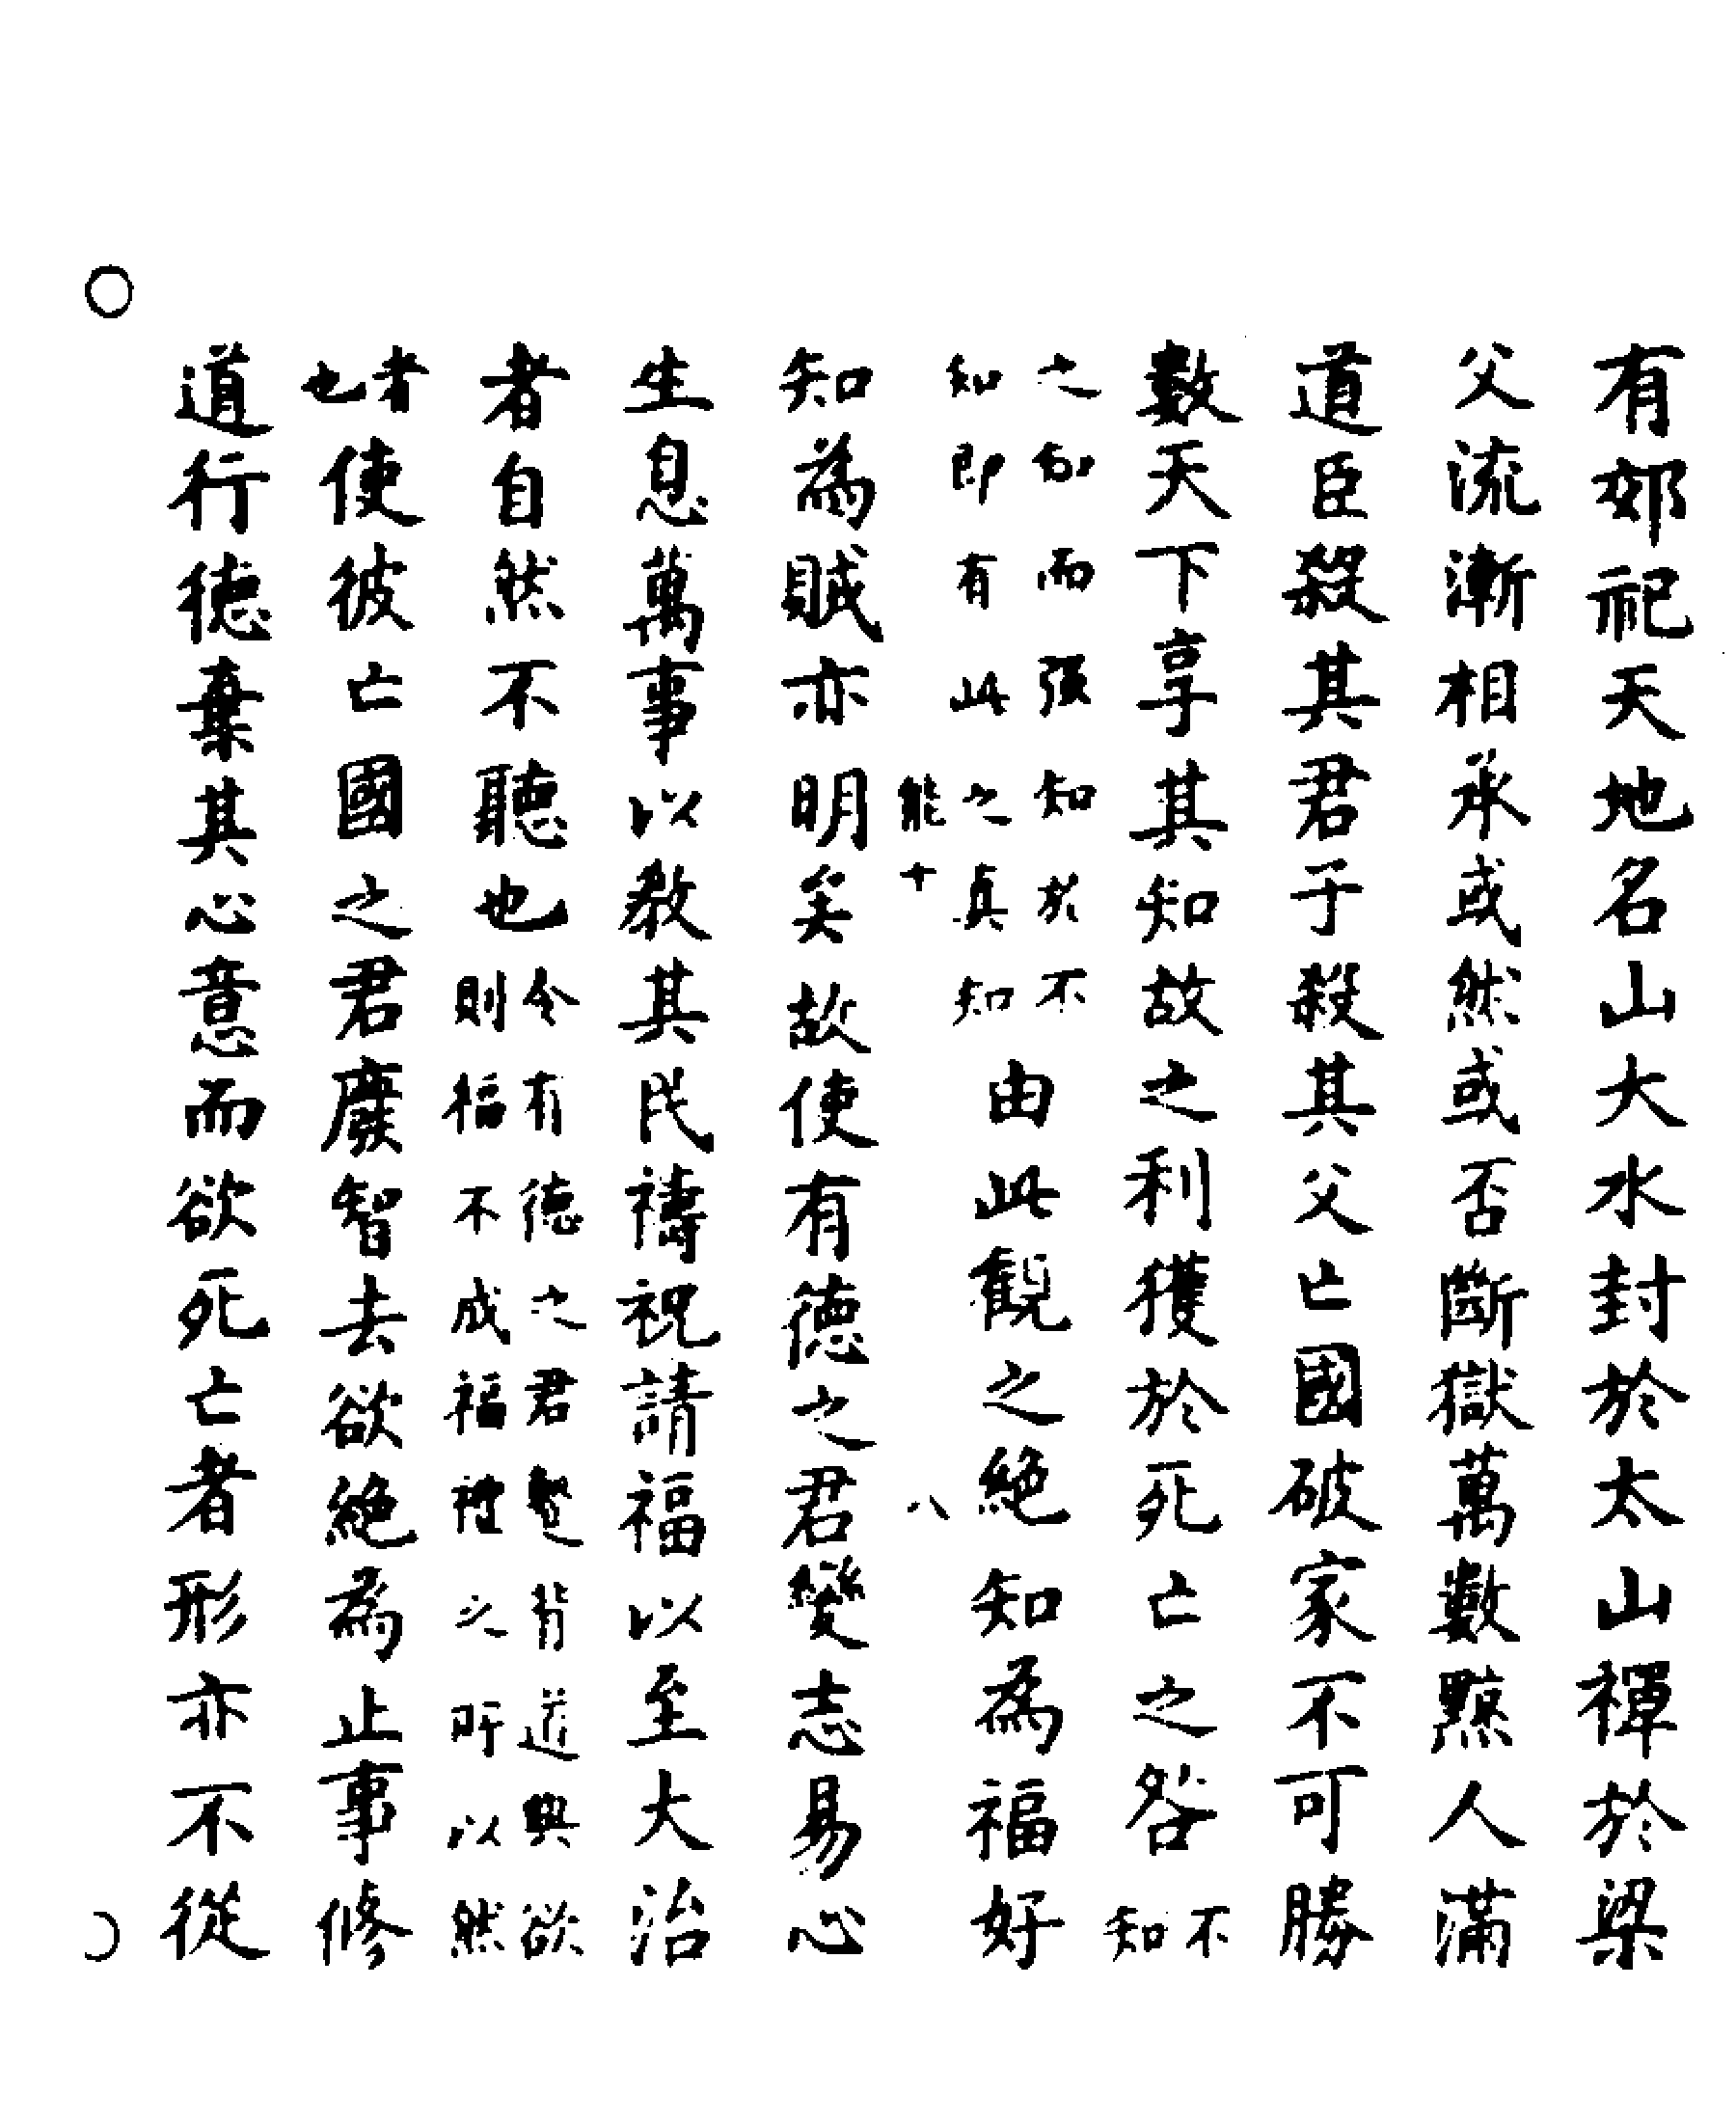 有郊祀天地名山大水封於太山禪於梁
父流漸相承或然或否斷獄萬數黥人滿
道臣殺其君子殺其父亡國破家不可勝
數天下享其知故之利獲於死亡之咎不知
之知而強知於不
知即有此之真知
由此觀之絕知為福好
能十
八
知為賊亦明矣故使有德之君變志易心
生息萬事以教其民禱祝請福以至大治
者自然不聽也
令有德之君背道與欲
則福不成福禮之所以然
者也
使彼亡國之君廢智去欲絕為止事脩
道行德棄其心意而欲死亡者形亦不從